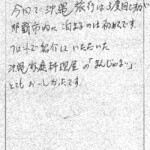 今回で沖縄旅行は3度目ですが
那覇市内に泊まるのは初めてです
フロントで紹介していただいた
沖縄家庭料理屋の「まんじゅまい」
とてもおいしかったです。